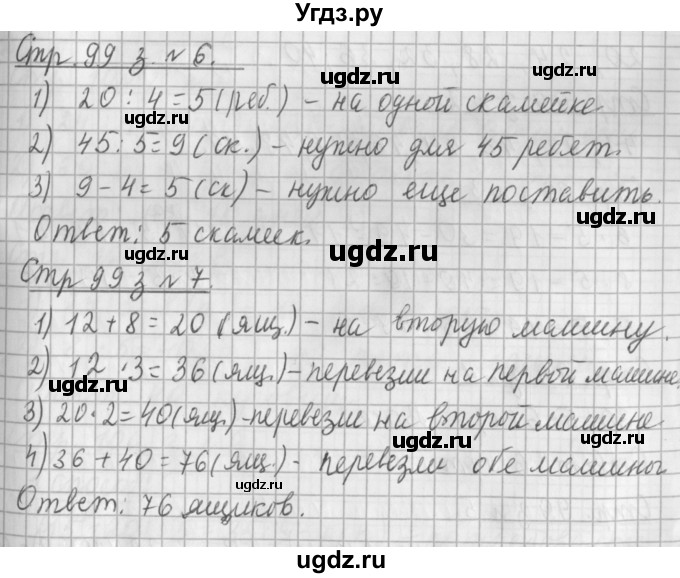 Угдз.ру
Стр. 99 з. № 6.
1) 20 : 4 = 5 (реб.) - на одной скамейке
2) 45 : 5 = 9 (ск.) - нужно для 45 ребят.
3) 9 - 4 = 5 (ск) - нужно еще поставить.
Ответ: 5 скамеек.
Стр 99 з № 7.
1) 12 + 8 = 20 (ящ.) - на вторую машину.
2) 12 · 3 = 36 (ящ.) - перевезли на первой машине.
3) 20 · 2 = 40 (ящ.) - перевезли на второй машине
4) 36 + 40 = 76 (ящ.) - перевезли обе машины
Ответ: 76 ящиков.
ugdz.ru